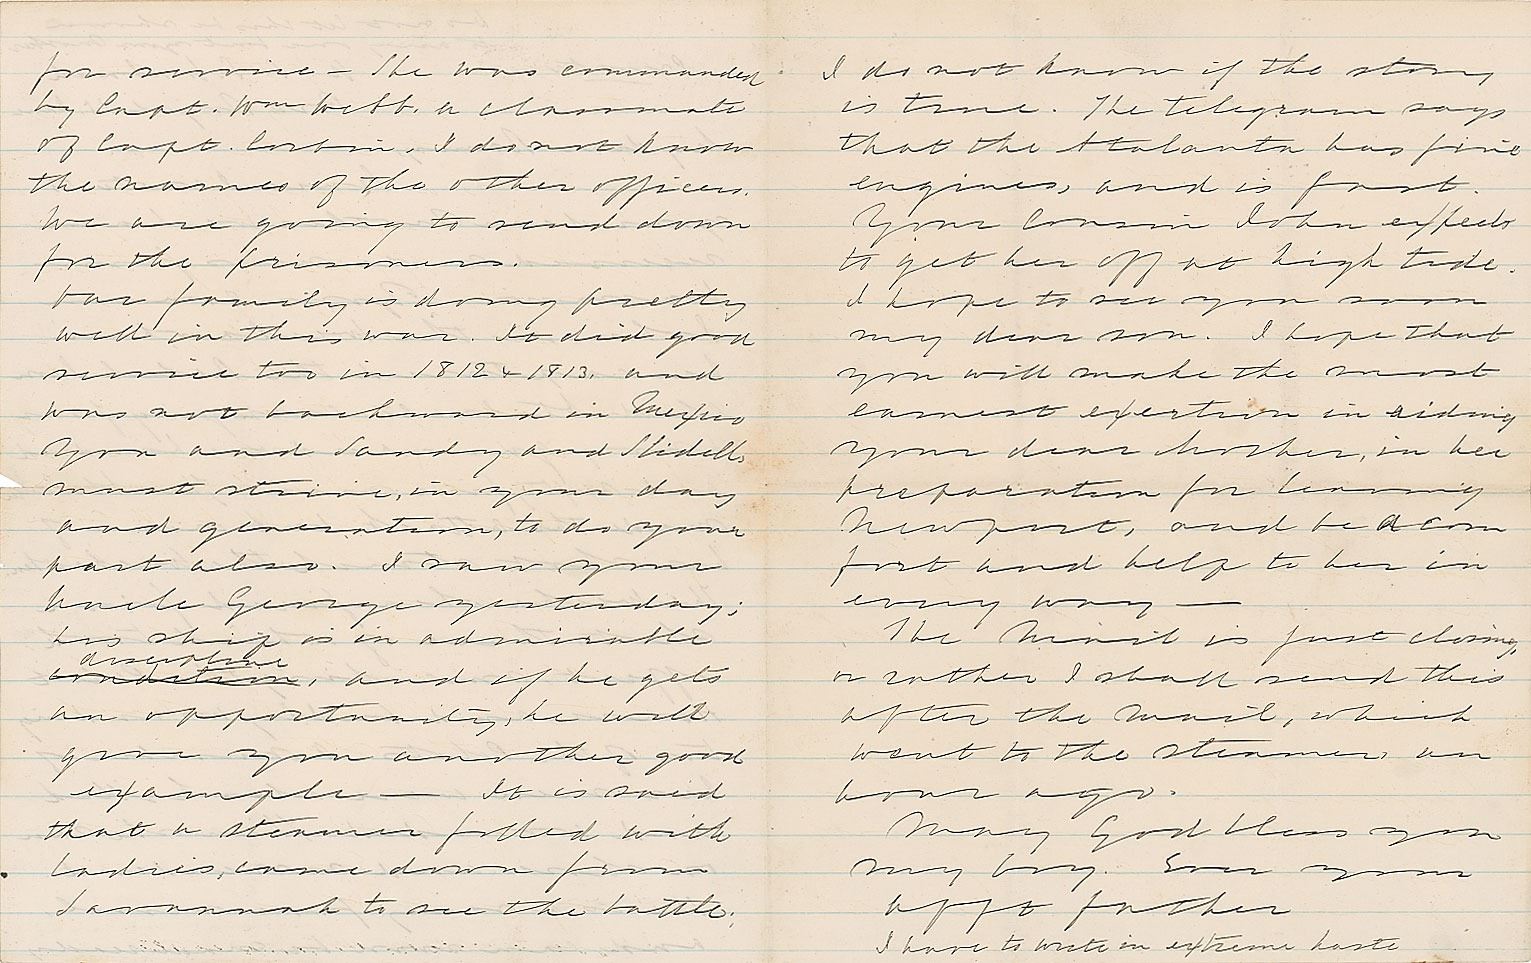 for service — She was commanded
by Capt. Wm Webb. a classmate
of Capt. Corbin. I do not know
the names of the other officers.
We are going to send down
for the prisoners.
Our family is doing pretty
well in this war. It did good
service too in 1812 & 1813. and
was not backward in Mexico
You and Sandy and Slidell
must strive, in your day
and generation, to do your
part also. I saw your
Uncle George yesterday;
his ship is in admirable
discipline
condition, and if he gets
an opportunity, he will
give you another good
example — It is said
that a steamer filled with
ladies, came down from
Savannah to see the battle.
I do not know if the story
is true. The telegram says
that the Atalanta has fine
engines, and is fast.
Your Cousin John expects
to get her off at high tide.
I hope to see you soon
my dear son. I hope that
you will make the most
earnest exertion in aiding
your dear Mother, in her
preparation for leaving
Newport, and be a com
fort and help to her in
every way —
The Mail is just closing,
or rather I shall send this
after the Mail, which
went to the steamer, an
hour ago.
May God bless you
my boy. Ever your
afft father
I have to write in extreme haste